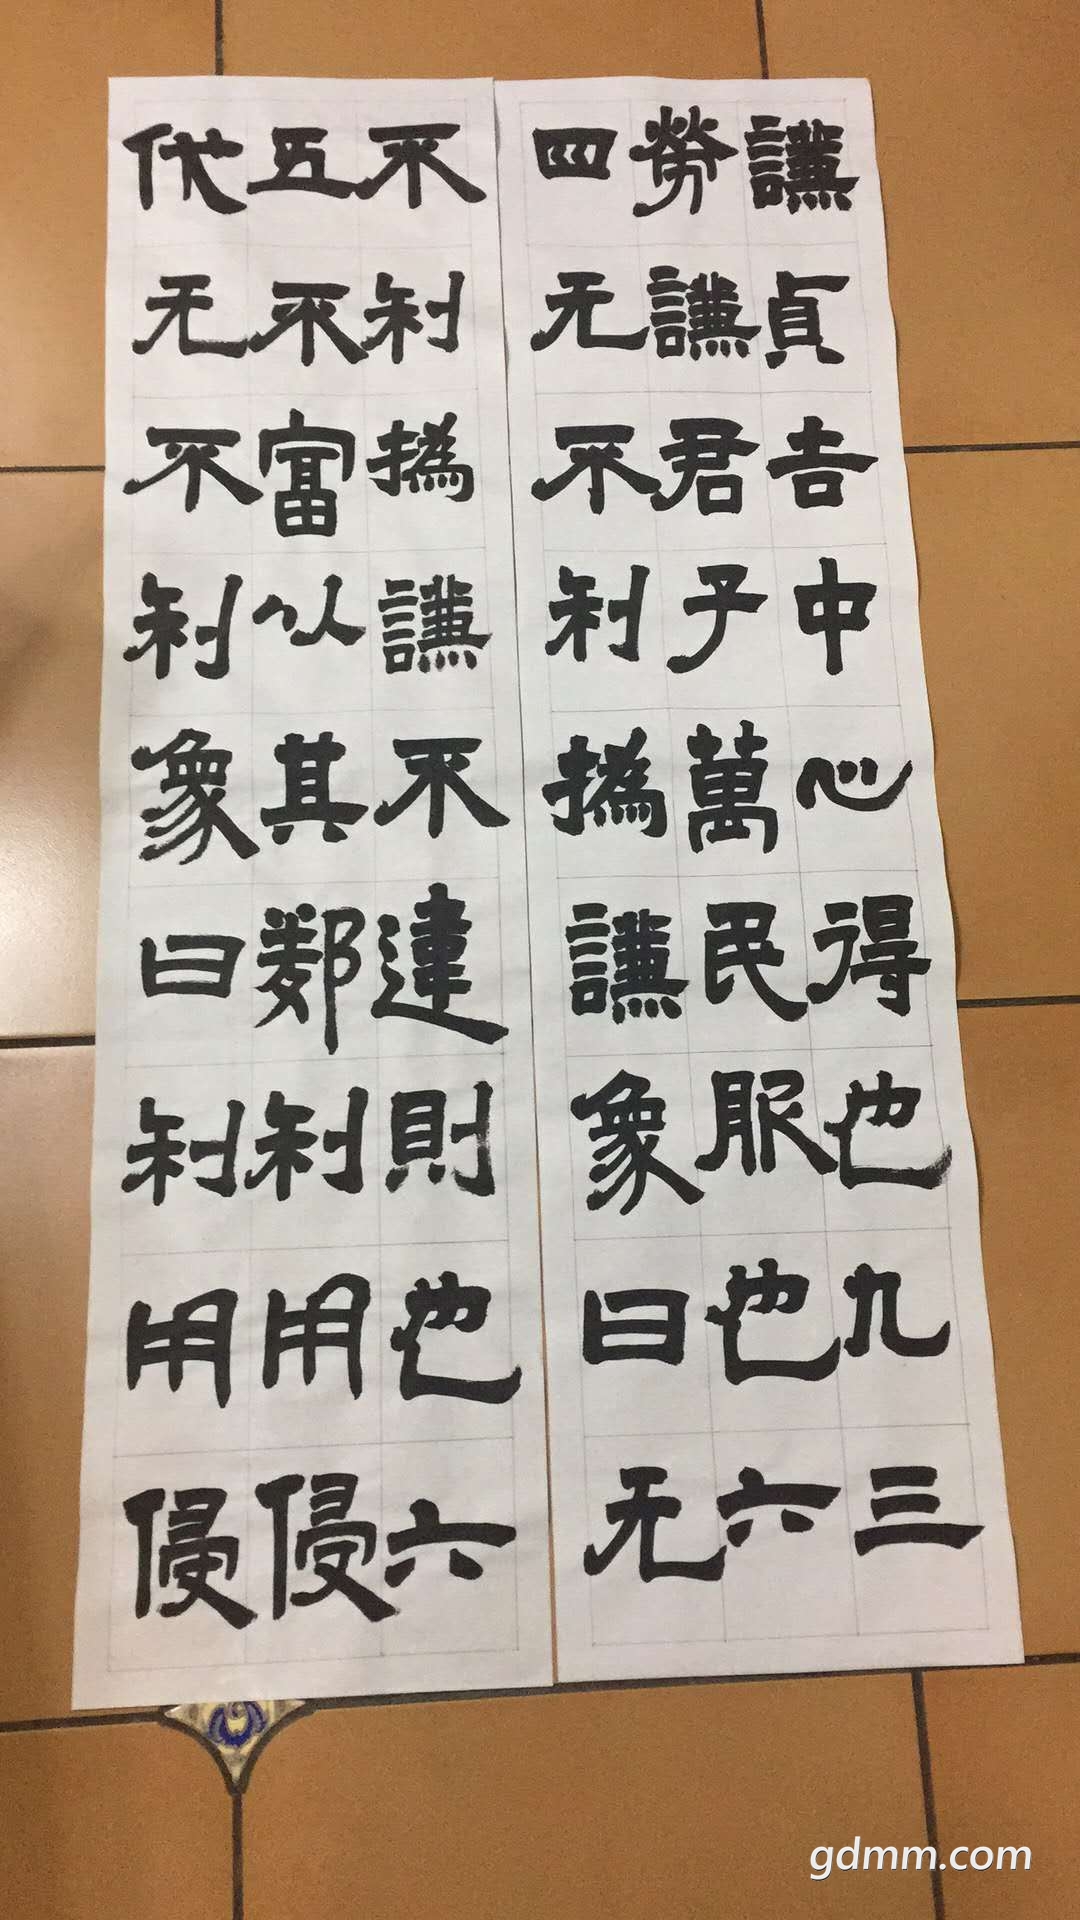 謙貞吉中心得也九三
勞謙君子萬民服也六
四无不利撝謙象曰无
不利撝謙不違則也六
五不富以其鄰利用侵
伐无不利象曰利用侵
gdmm.com